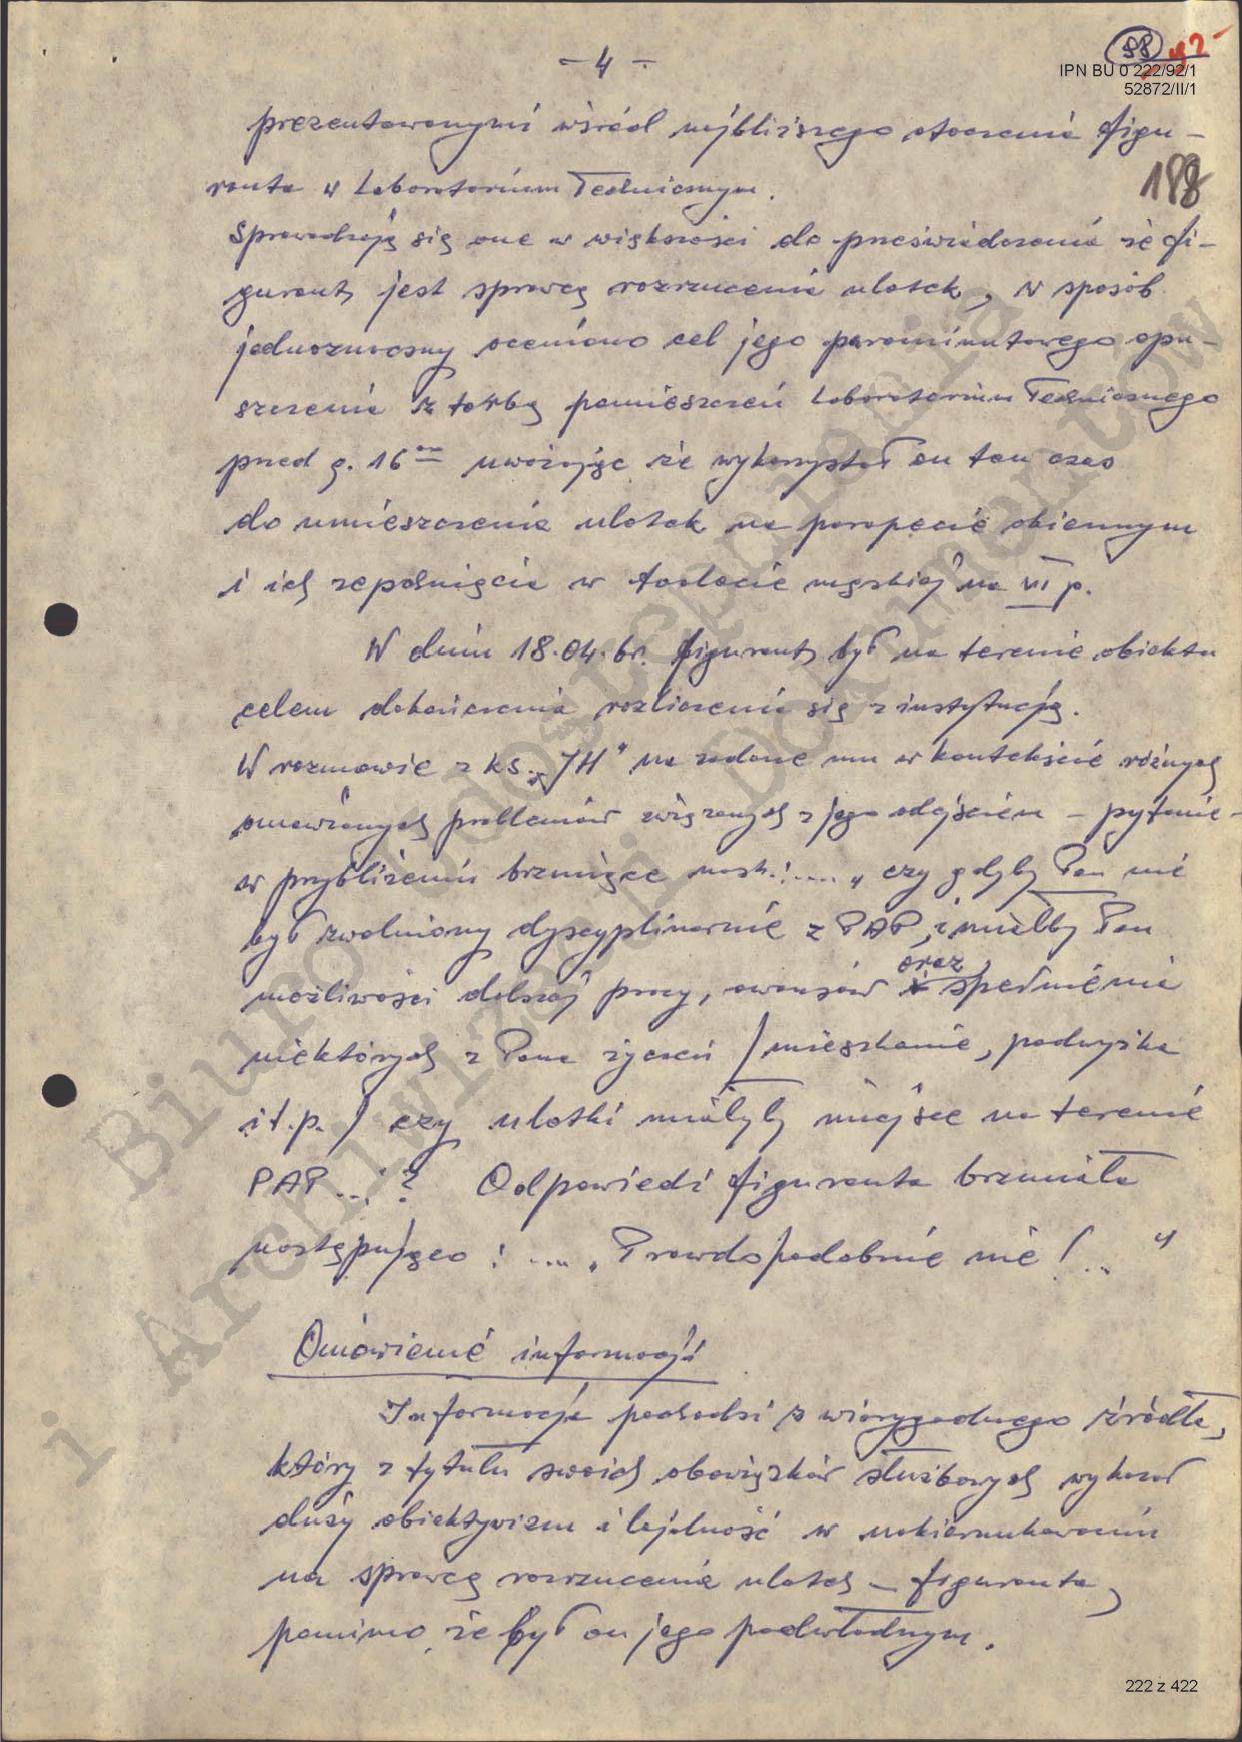 - 4 -
88
42
IPN BU 0 222/92/1
52872/II/1
188
prezentowanymi wśród najbliższego otoczenia figu-
ranta w Laboratorium Technicznym.
Sprowadzają się one w większości do przeświadczenia że fi-
gurant jest sprawcą rozrzucenia ulotek, w sposób
jednoznaczny oceniono cel jego parominutowego opu-
szczenia z torbą pomieszczeń Laboratorium Technicznego
przed g. 16⁰⁰ uważając że wykorzystał on ten czas
do umieszczenia ulotek na parapecie okiennym
i ich zapalnięcia w toalecie męskiej na VI p.
W dniu 18.04.br. figurant był na terenie obiektu
celem dokończenia rozliczenia się z instytucją.
W rozmowie z ks. "JH" na zadane mu w kontekście różnych
omawianych problemów związanych z jego odejściem – pytanie –
w przybliżeniu brzmiące nast.: .... „czy gdyby Pan nie
był zwolniony dyscyplinarnie z PAP, i miałby Pan
możliwości dalszej pracy, awansów oraz spełnienie
niektórych z Pana życzeń /mieszkanie, podwyżka
it.p./ czy ulotki miałyby miejsce na terenie
PAP ...? Odpowiedź figuranta brzmiała
następująco : .... „Prawdopodobnie nie! .. "
Omówienie informacji
Informacja pochodzi z wiarygodnego źródła,
który z tytułu swoich obowiązków służbowych wykazał
duży obiektywizm i lojalność w ukierunkowaniu
na sprawcę rozrzucenia ulotek – figuranta,
pomimo że był on jego podwładnym.
Biuro Udostępniania
i Archiwizacji Dokumentów
222 z 422